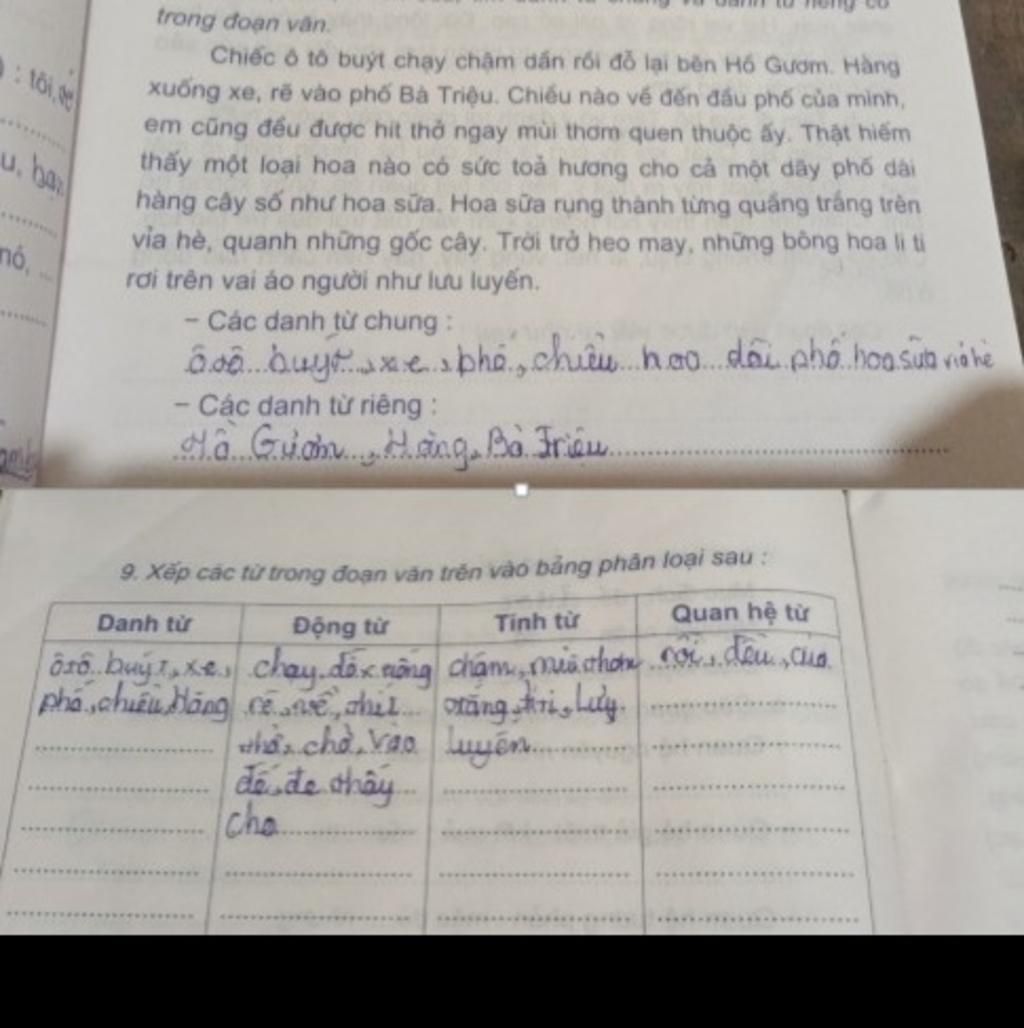 trong đoạn văn.
Chiếc ô tô buýt chạy chậm dần rồi đỗ lại bên Hồ Gươm. Hằng
xuống xe, rẽ vào phố Bà Triệu. Chiều nào về đến đầu phố của mình,
em cũng đều được hít thở ngay mùi thơm quen thuộc ấy. Thật hiếm
thấy một loại hoa nào có sức toả hương cho cả một dãy phố dài
hàng cây số như hoa sữa. Hoa sữa rụng thành từng quầng trắng trên
vỉa hè, quanh những gốc cây. Trời trở heo may, những bông hoa li ti
rơi trên vai áo người như lưu luyến.
– Các danh từ chung :
buýt, xe, phố, chiều hoa phố hoa sữa vỉa hè
– Các danh từ riêng :
Hồ Gươm, Hằng, Bà Triệu
: tôi,
nó, ...
9. Xếp các từ trong đoạn văn trên vào bảng phân loại sau :
Danh từ Động từ Tính từ Quan hệ từ
buýt, xe, chạy, chậm, rồi, đều, của
phố, chiều, Hằng rẽ, về,
vào luyến
thấy
cho